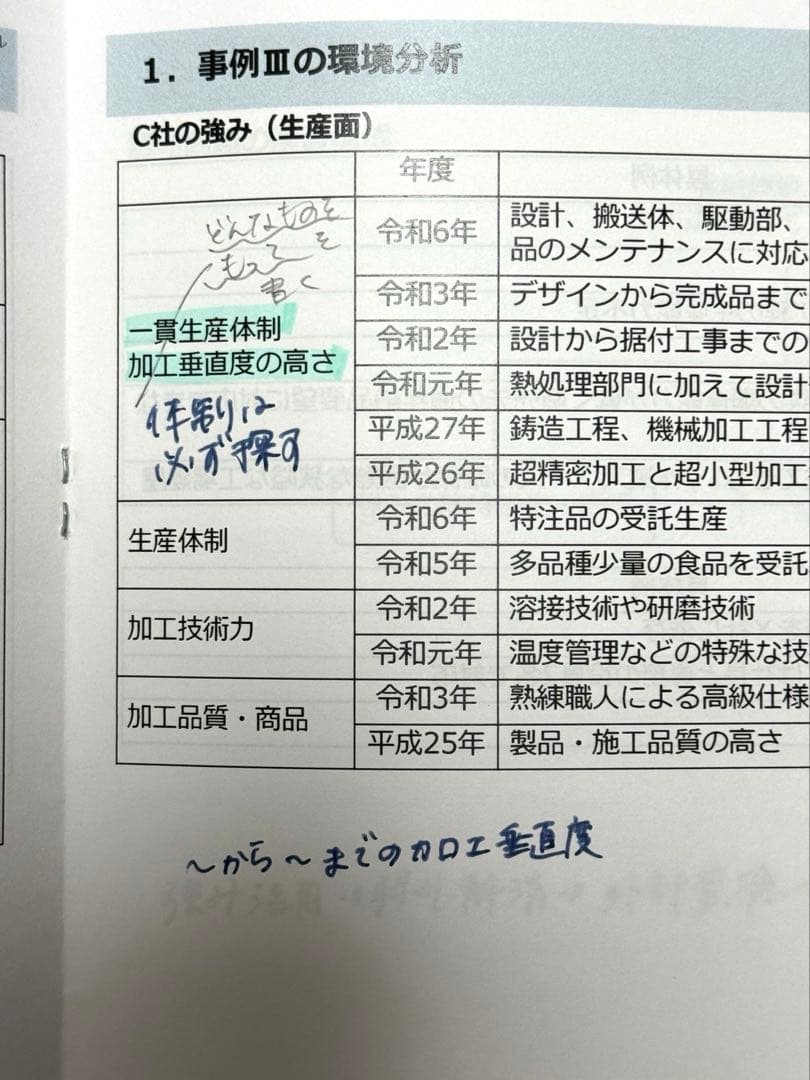 1. 事例Ⅲの環境分析
C社の強み（生産面）
年度
どんなものを
もってを
書く
一貫生産体制
加工垂直度の高さ
体制は
必ず探す
令和6年 設計、搬送体、駆動部、
品のメンテナンスに対応
令和3年 デザインから完成品まで
令和2年 設計から据付工事までの
令和元年 熱処理部門に加えて設計
平成27年 鋳造工程、機械加工工程
平成26年 超精密加工と超小型加工
生産体制
令和6年 特注品の受託生産
令和5年 多品種少量の食品を受託
加工技術力
令和2年 溶接技術や研磨技術
令和元年 温度管理などの特殊な技
加工品質・商品
令和3年 熟練職人による高級仕様
平成25年 製品・施工品質の高さ
～から～までの加工垂直度